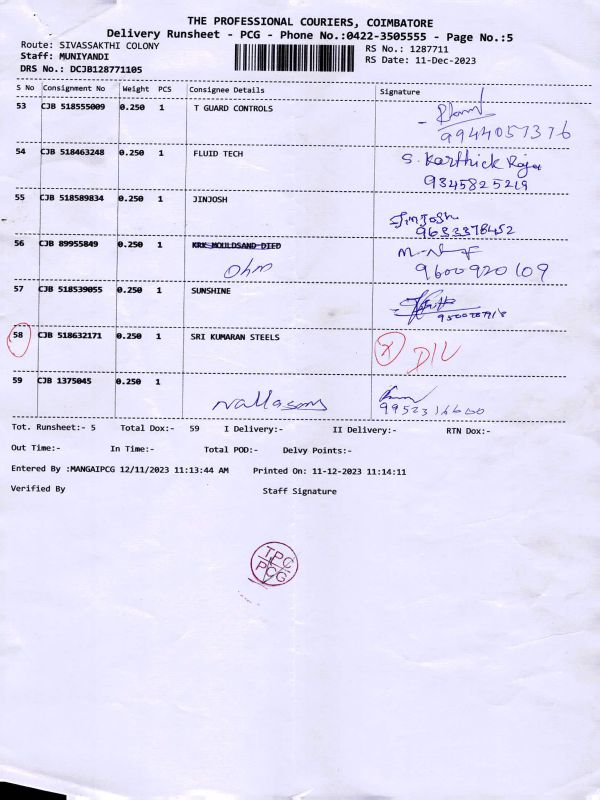 THE PROFESSIONAL COURIERS, COIMBATORE
Delivery Runsheet - PCG - Phone No.:0422-3505555 - Page No.:5
Route: SIVASSAKTHI COLONY RS No.: 1287711
Staff: MUNIYANDI RS Date: 11-Dec-2023
DRS No.: DCJB128771105
S No Consignment No Weight PCS Consignee Details Signature
53 CJB 518555009 0.250 1 T GUARD CONTROLS
9944057376
54 CJB 518463248 0.250 1 FLUID TECH S. Karthick Raja
9345825219
55 CJB 518589834 0.250 1 JINJOSH JINJOSH
9633378452
56 CJB 89955849 0.250 1 KRK MOULDSAND DIED
Ohm 9600920109
57 CJB 518539055 0.250 1 SUNSHINE
58 CJB 518632171 0.250 1 SRI KUMARAN STEELS X D/L
59 CJB 1375045 0.250 1
Nallasamy
Tot. Runsheet:- 5 Total Dox:- 59 I Delivery:- II Delivery:- RTN Dox:-
Out Time:- In Time:- Total POD:- Delvy Points:-
Entered By :MANGAIPCG 12/11/2023 11:13:44 AM Printed On: 11-12-2023 11:14:11
Verified By Staff Signature
TPC
PCG